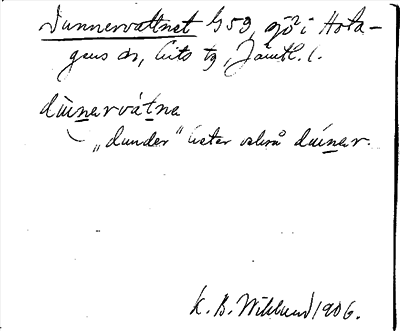 Dunnervattnet G59, sjö i Hota-
gens sn, Lits tg, Jämtl. l.
dùnervátna
„dunder" heter också dúnar.
K. B. Wiklund 1906.